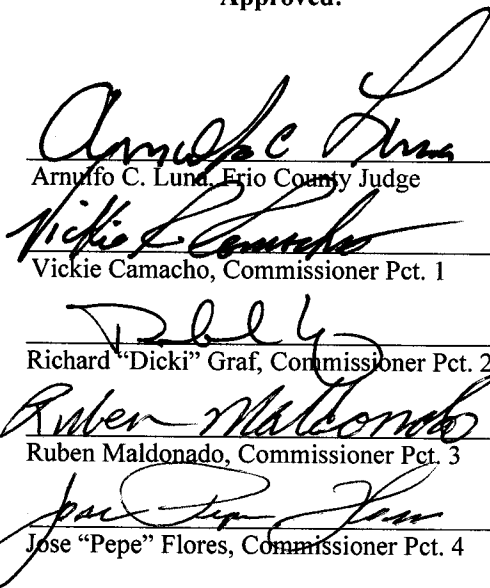 Approved:
Arnulfo C Luna
Arnulfo C. Luna, Frio County Judge
Vickie R Camacho
Vickie Camacho, Commissioner Pct. 1
Richard "Dicki" Graf, Commissioner Pct. 2
Ruben Maldonado
Ruben Maldonado, Commissioner Pct. 3
Jose Pepe Flores
Jose "Pepe" Flores, Commissioner Pct. 4